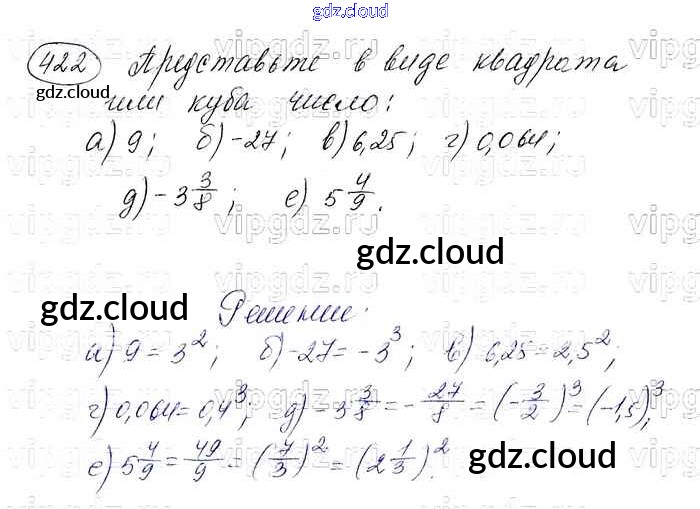 gdz.cloud
422 Представьте в виде квадрата
gdz.cloud
или куба число:
а) 9; б) -27; в) 6,25; г) 0,064;
д) -3 3/8; е) 5 4/9.
gdz.cloud
gdz.cloud
Решение:
а) 9 = 3²; б) -27 = -3³; в) 6,25 = 2,5²;
г) 0,064 = 0,4³; д) -3 3/8 = -27/8 = (-3/2)³ = (-1,5)³;
е) 5 4/9 = 49/9 = (7/3)² = (2 1/3)².
gdz.cloud